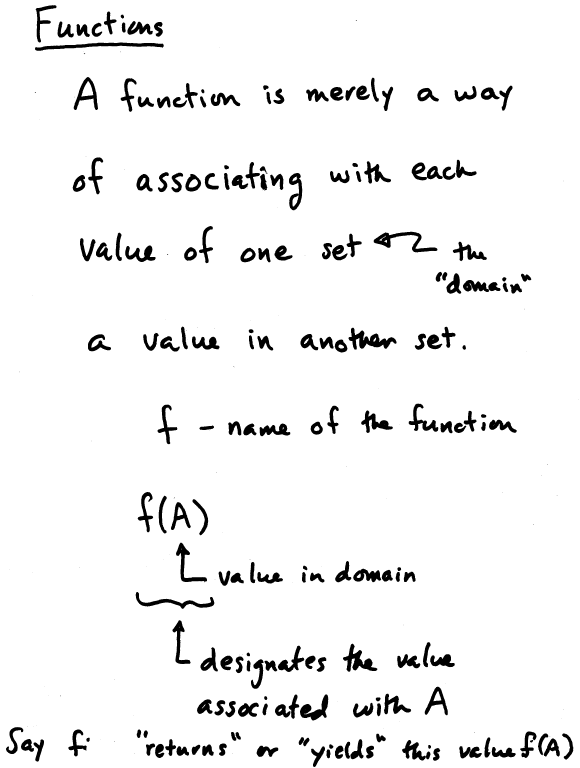 Functions
A function is merely a way
of associating with each
value of one set the
"domain"
a value in another set.
f - name of the function
f(A)
value in domain
designates the value
associated with A
Say f "returns" or "yields" this value f(A)